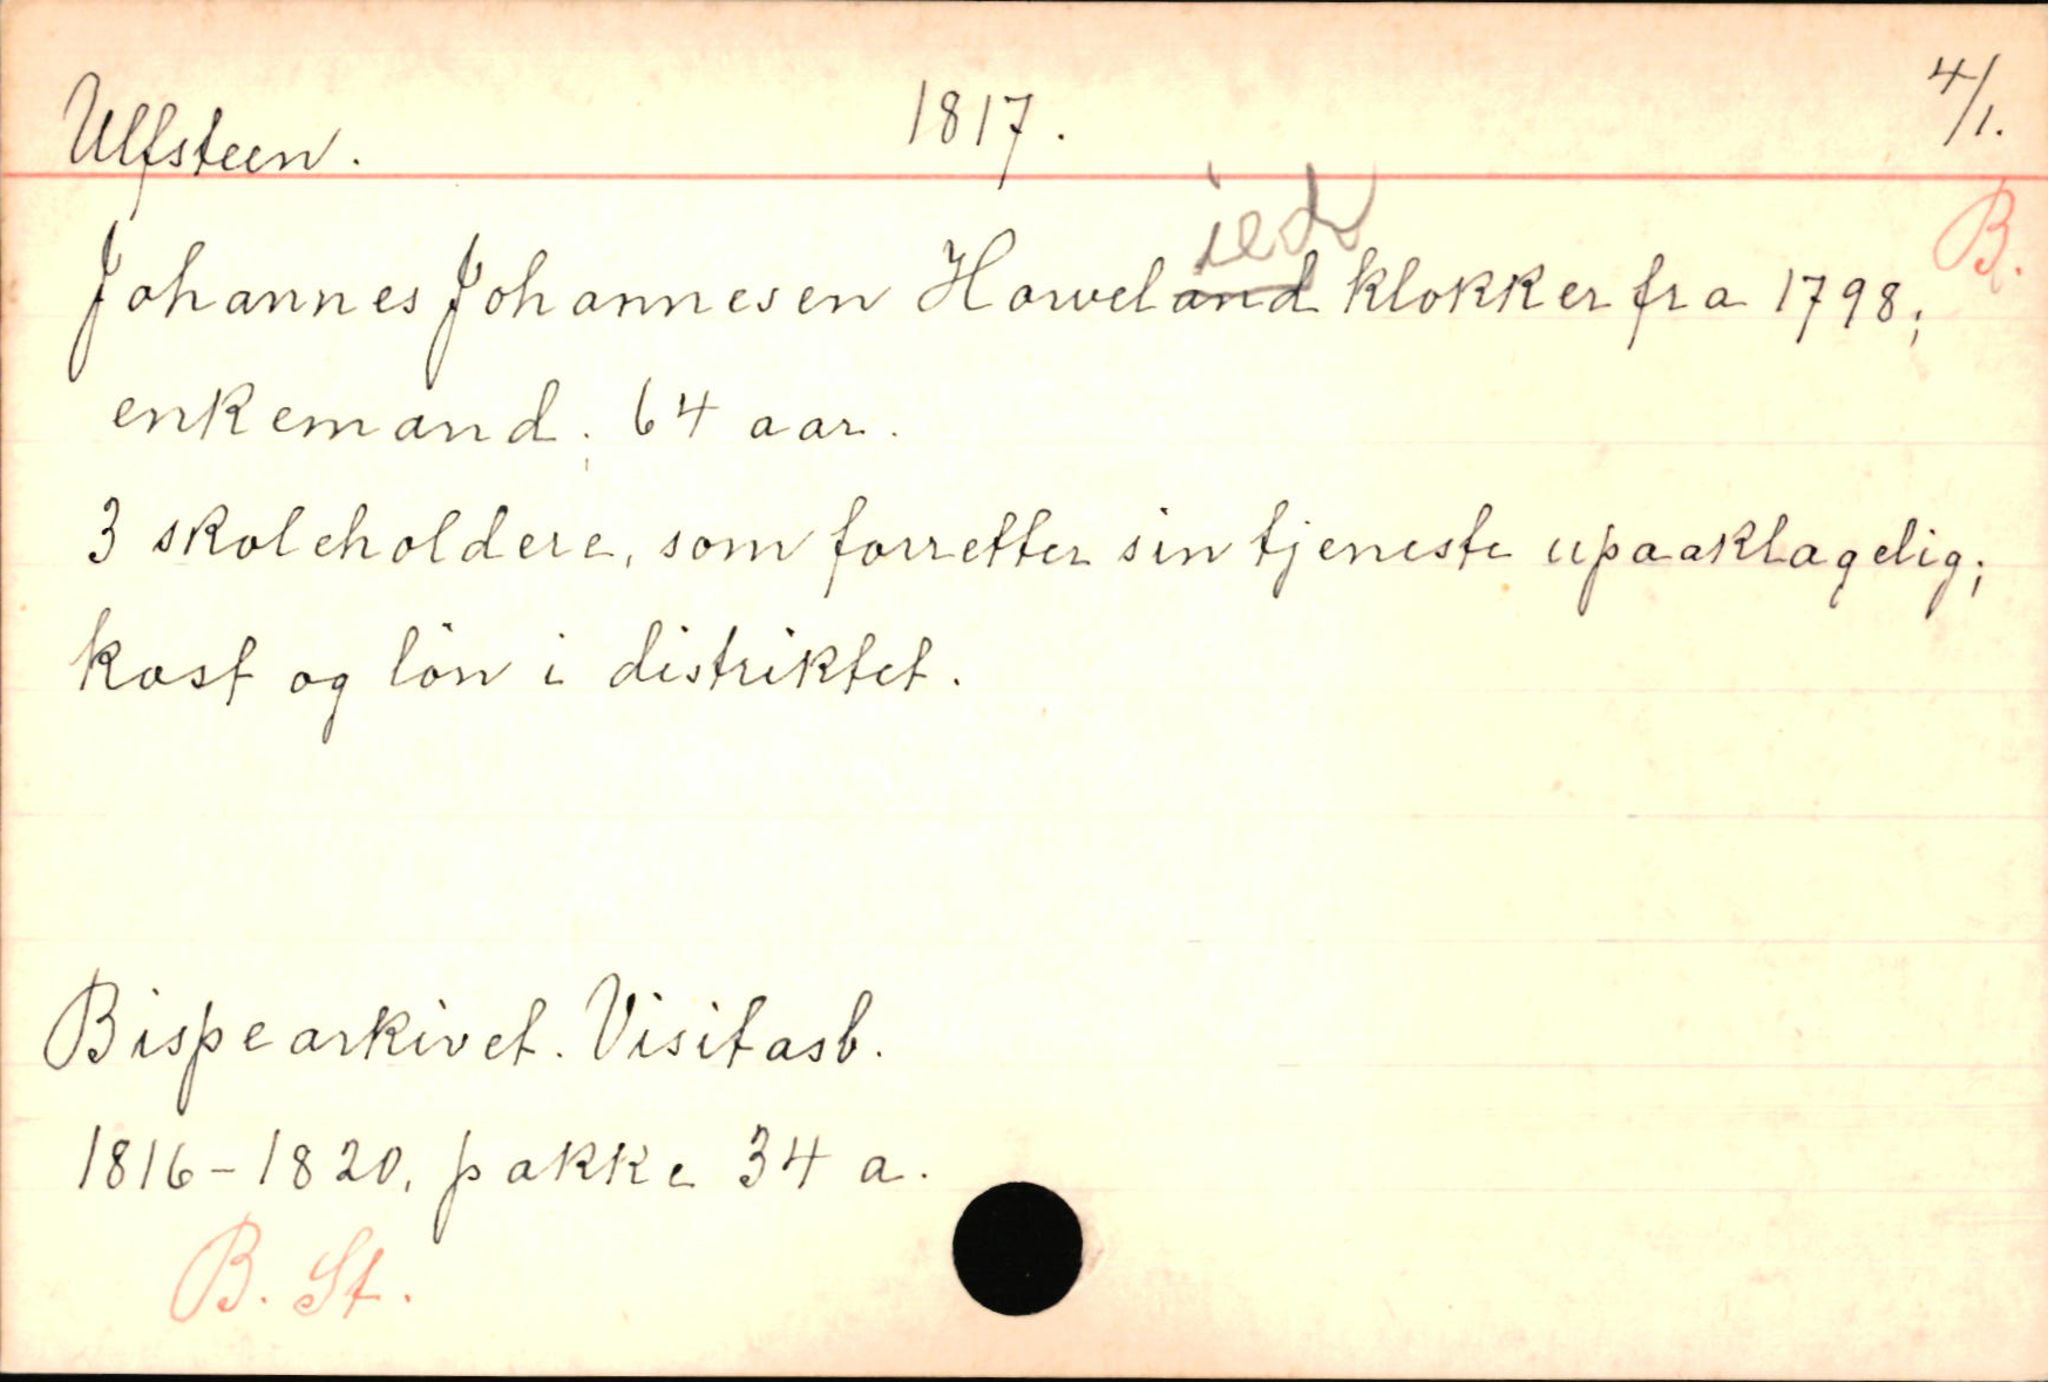 Ulfsteen. 1817. 4/1.
B.
ied
Johannes Johannesen Howeland klokker fra 1798;
enkemand; 64 aar.
3 skoleholdere, som forretter sin tjeneste upaaklagelig;
kost og lön i distriktet.
Bispearkivet. Visitasb.
1816-1820, pakke 34 a.
B. St.